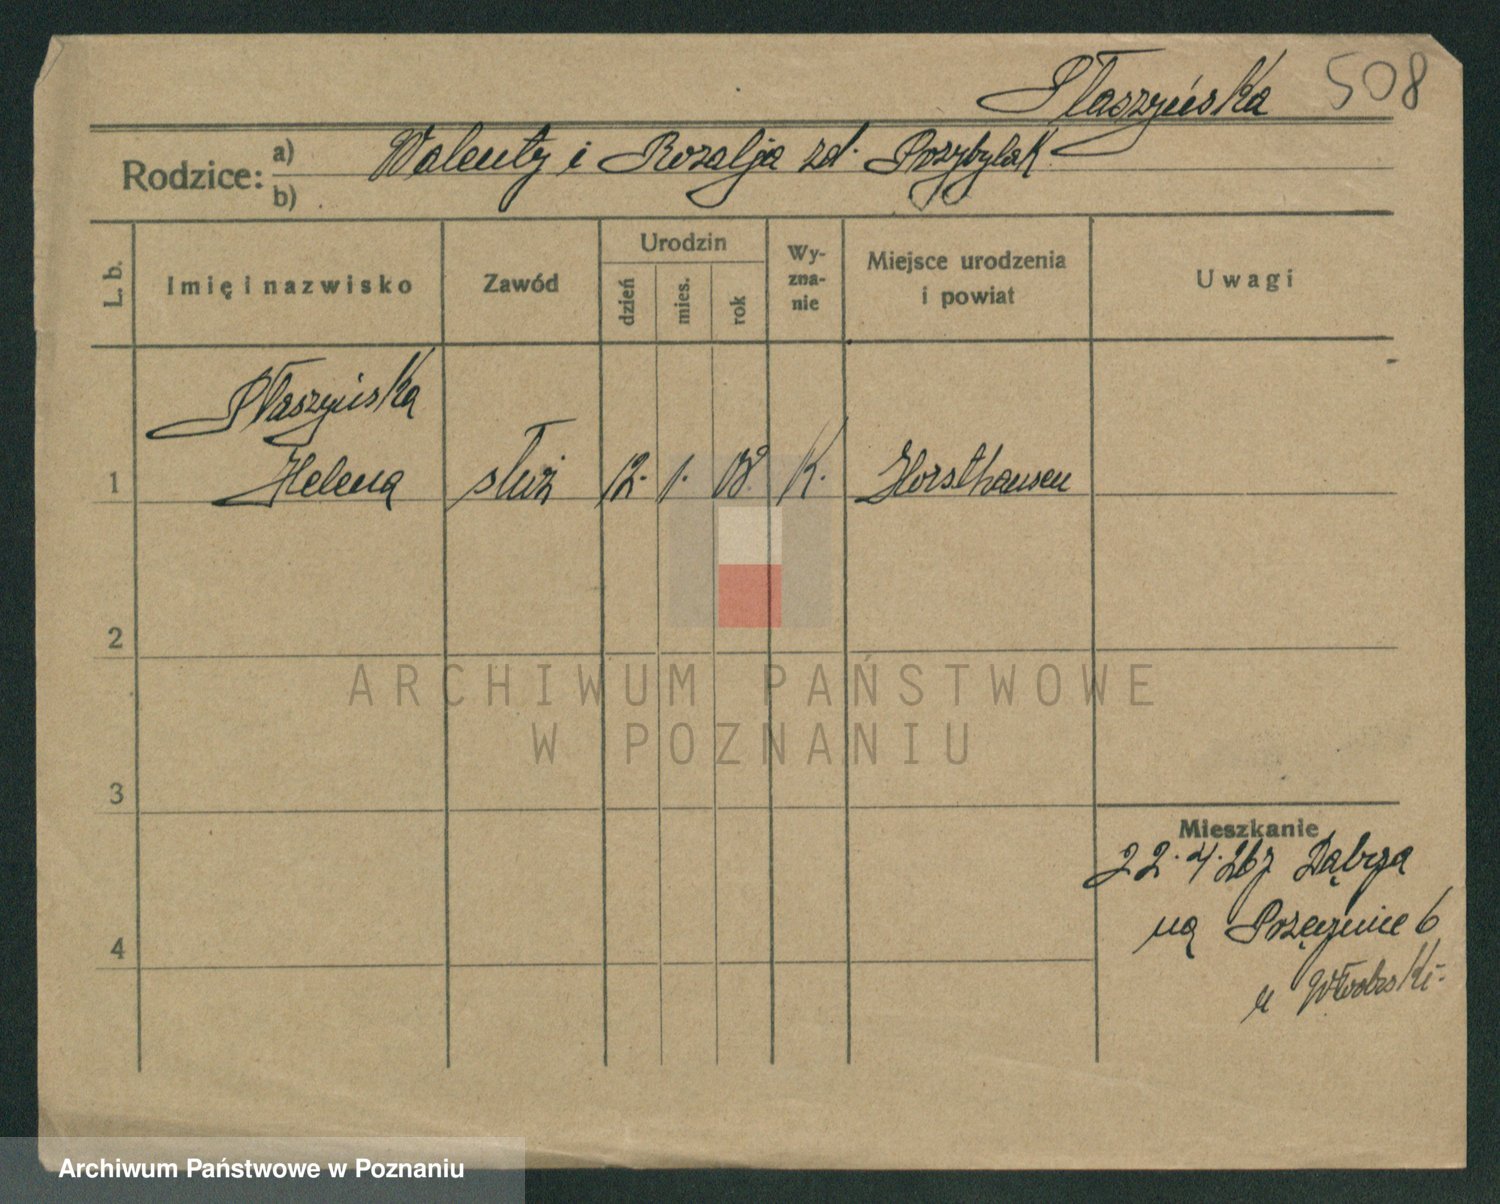 Płaszyńska 508
Rodzice: a) Walenty i Rozalja zd. Przybylak
b)
L. b. Imię i nazwisko Zawód Urodzin dzień mies. rok Wy-zna-nie Miejsce urodzenia i powiat Uwagi
Płaszyńska
1 Helena służ 12. 1. 08 k. Horsthausen
2
3
4
Mieszkanie
22.4.26 z Dąbrza
na Przęcznie 6
u
ARCHIWUM PAŃSTWOWE
W POZNANIU
Archiwum Państwowe w Poznaniu